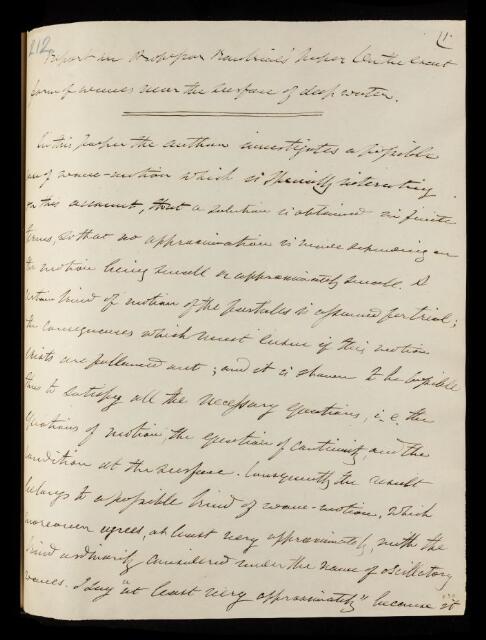 212
1
Report on Professor Rankine's paper "On the exact
form of waves near the surface of deep water.
In this paper the author investigates a possible
case of wave-motion which is specially interesting
on this account, that a solution is obtained in finite
terms, so that no approximation is made depending on
the motion being small or approximately small. A
certain kind of motion of the particles is assumed for trial;
the consequences which must ensue if this motion
exists are followed out; and it is shewn to be possible
thus to satisfy all the necessary equations, i.e. the
equations of motion, the equation of continuity, and the
condition at the surface. Consequently the result
belongs to a possible kind of wave-motion, which
moreover agrees, at least very approximately, with the
kind ordinarily considered under the name of oscillatory
waves. I say "at least very approximately" because it